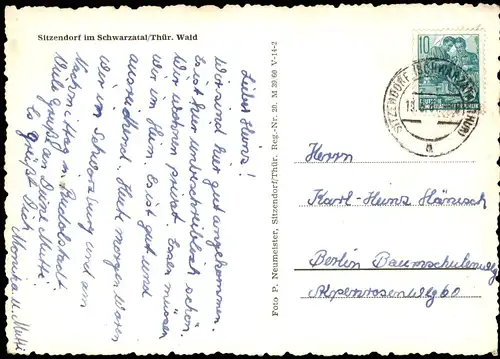 Sitzendorf im Schwarzatal/Thür. Wald
Liebe Heins!
Wir sind hier gut angekommen.
Es ist hier unbeschreiblich schön.
Wir wohnen privat. Essen müssen
wir im Heim. Es ist gut und
ausreichend. Heute morgen waren
wir in Schwarzburg und am
Nachmittag in Rudolstadt.
Viele Grüße an Deine Mutti.
Es grüßt Dich
Monika u. Mutti
Foto P. Neumeister, Sitzendorf/Thür. Reg.-Nr. 20. M 29 60 V-14-2
10
SITZENDORF (SCHWARZATAL/THÜR)
a
Herrn
Karl-Heinz Hänisch
Berlin Baumschulenweg
Alpenrosenweg 60